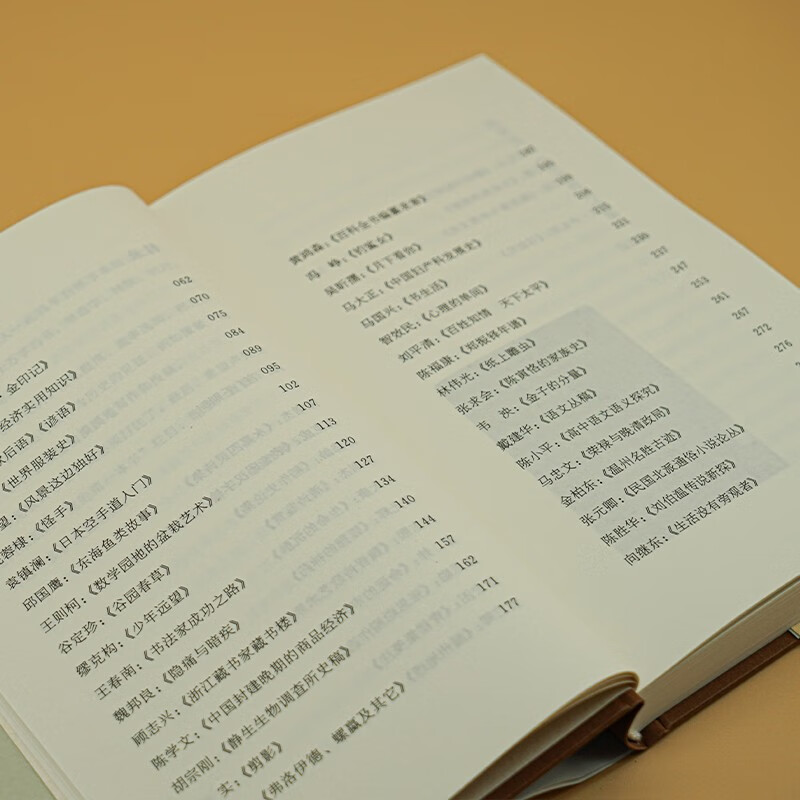 金印记》 062
经济实用知识》 070
家后语》《谚语》 075
《世界服装史》 084
望：《风景这边独好》 089
容棣：《怪手》 095
袁镇澜：《日本空手道入门》 102
邱国鹰：《东海鱼类故事》 107
王则柯：《数学园地的盆栽艺术》 113
谷定珍：《谷园春草》 120
缪克构：《少年远望》 127
王春南：《书法家成功之路》 134
魏邦良：《隐痛与暗疾》 140
顾志兴：《浙江藏书家藏书楼》 144
陈学文：《中国封建晚期的商品经济》 157
胡宗刚：《静生生物调查所史稿》 162
实：《剪影》 171
《弗洛伊德、螺蠃及其它》 177
黄鸿森：《百科全书编纂求索》 187
冯　峥：《钓鲨女》 195
吴昕孺：《月下看你》 199
马大正：《中国妇产科发展史》 204
马国兴：《书生活》
智效民：《心理的单间》 221
刘平清：《百姓知情　天下太平》 230
陈福康：《郑振铎年谱》 237
林伟光：《纸上蠹虫》 247
张求会：《陈寅恪的家族史》 253
韦　泱：《金子的分量》 261
戴建华：《语文丛稿》 267
陈小平：《高中语文语义探究》 272
马忠文：《荣禄与晚清政局》 276
金柏东：《温州名胜古迹》
张元卿：《民国北派通俗小说论丛》
陈胜华：《刘伯温传说新探》
向继东：《生活没有旁观者》